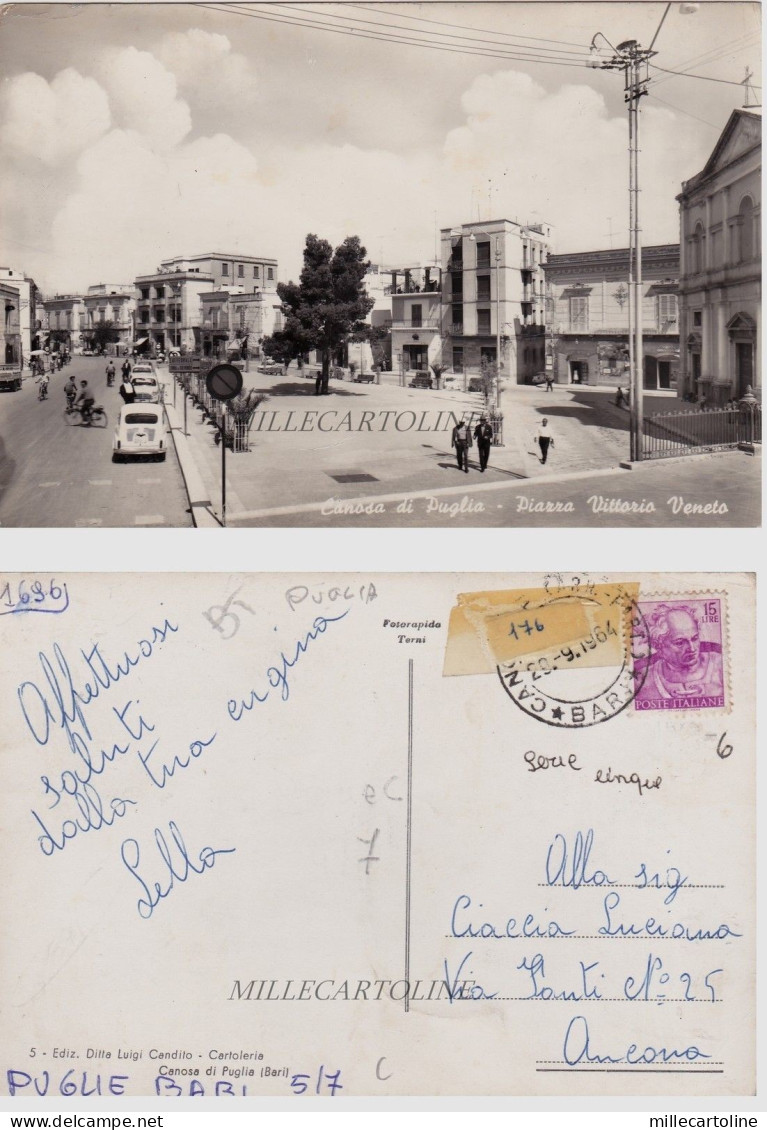 MILLECARTOLINE
Canosa di Puglia - Piazza Vittorio Veneto
1696
BT
PUGLIA
Fotorapida
Terni
176
20-9.1964
CANO
★ BARI ★
15
LIRE
POSTE ITALIANE
Affettuosi
saluti
dalla tua cugina
Lella
6
serie cinque
ec
7
Alla sig.
Ciaccia Luciana
Via Santi N° 25
Ancona
MILLECARTOLINE
5 - Ediz. Ditta Luigi Candito - Cartoleria
Canosa di Puglia (Bari)
PUGLIE BARI 5/7
C
millecartoline